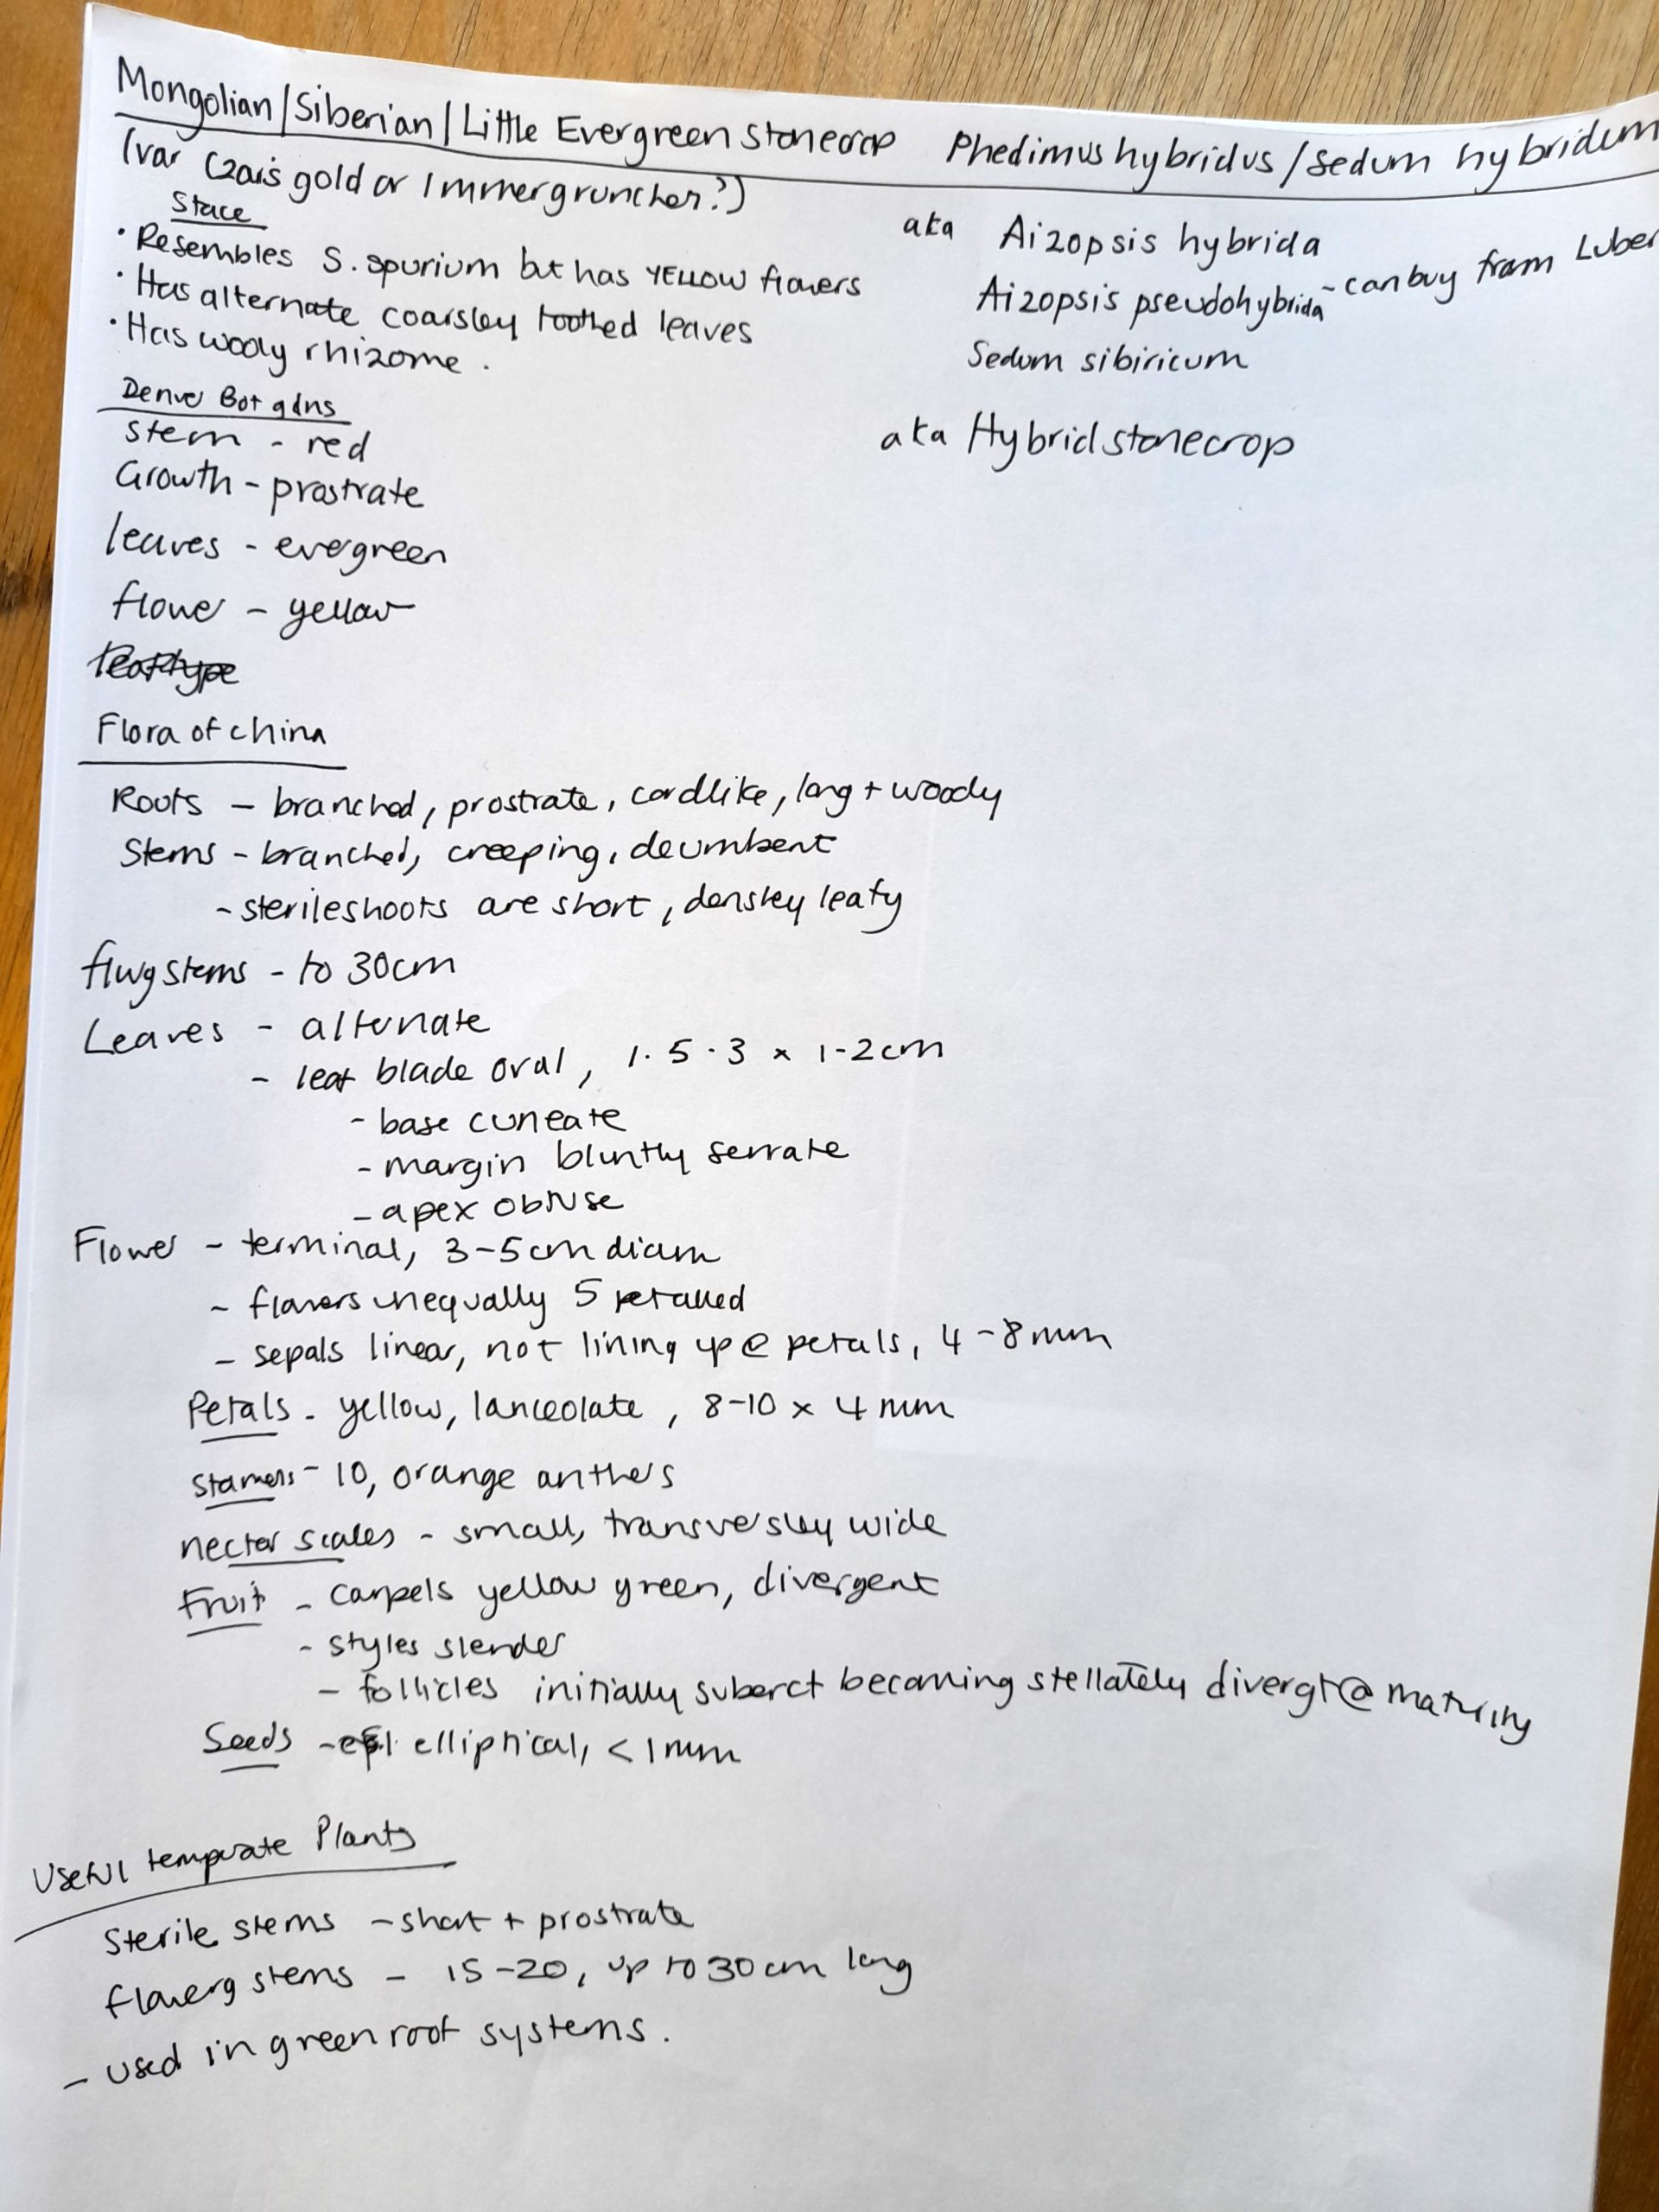 Mongolian/Siberian/Little Evergreen stonecrop Phedimus hybridus/sedum hybridum
(var Czars gold or Immergrunchen?)
aka Aizopsis hybrida
Aizopsis pseudohybrida - can buy from Luber
Sedum sibiricum
aka Hybrid stonecrop
Stace
• Resembles S. spurium but has YELLOW flowers
• Has alternate coarsley toothed leaves
• Has wooly rhizome.
Denver Bot gdns
Stem - red
Growth - prostrate
leaves - evergreen
flower - yellow
Flora of china
Roots - branched, prostrate, cordlike, long + woody
Stems - branched, creeping, decumbent
- sterile shoots are short, densley leafy
flwg stems - to 30cm
Leaves - alternate
- leaf blade oval, 1.5-3 x 1-2cm
- base cuneate
- margin bluntly serrate
- apex obtuse
Flower - terminal, 3-5cm diam
- flowers unequally 5 petalled
- sepals linear, not lining up @ petals, 4-8mm
Petals - yellow, lanceolate, 8-10 x 4mm
Stamens - 10, orange anthers
nectar scales - small, transversley wide
Fruit - carpels yellow green, divergent
- styles slender
- follicles initially suberct becoming stellately divergt @ maturity
Seeds - elliptical, <1mm
Useful temperate Plants
Sterile stems - short + prostrate
flowerg stems - 15-20, up to 30cm long
- used in green roof systems.